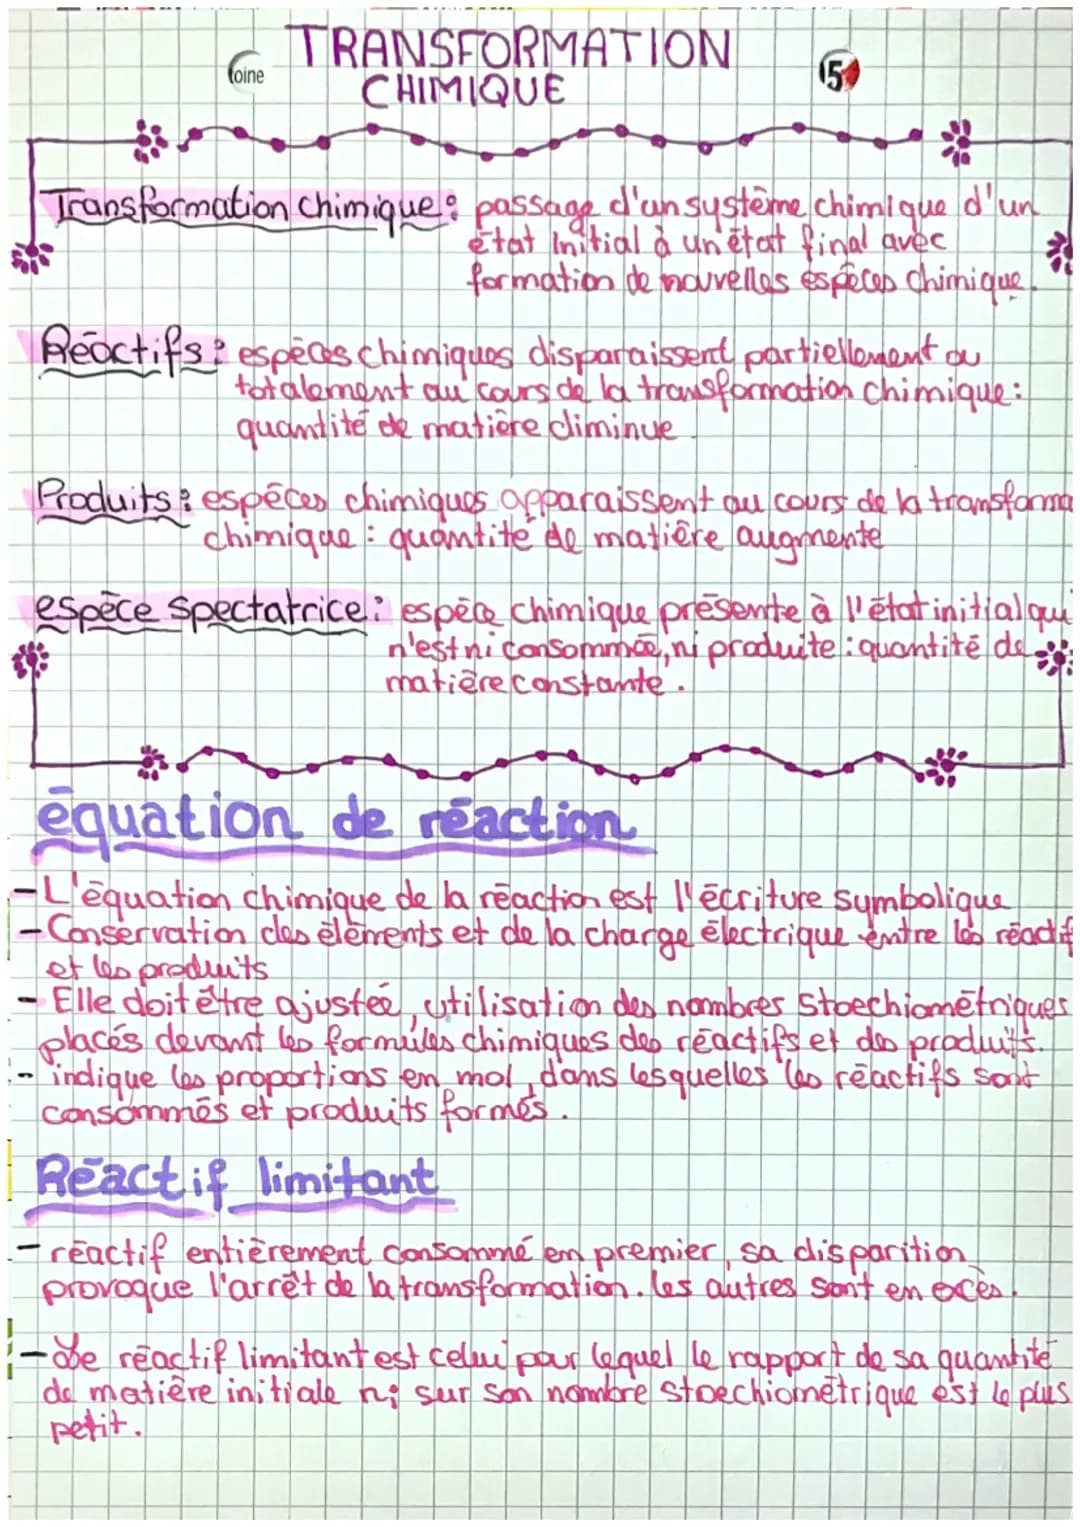 TRANSFORMATION
CHIMIQUE
toine
15
Transformation chimique : passage d'un système chimique d'un
état initial à un état final avec
formation de nouvelles espèces chimique.
Réactifs : espèces chimiques disparaissent partiellement ou
totalement au cours de la transformation chimique :
quantité de matière diminue.
Produits : espèces chimiques apparaissent au cours de la transforma
chimique : quantité de matière augmente
espèce spectatrice : espèce chimique présente à l'état initial qui
n'est ni consommée, ni produite : quantité de
matière constante.
équation de réaction
- L'équation chimique de la réaction est l'écriture symbolique
- Conservation des éléments et de la charge électrique entre les réactif
et les produits
- Elle doit être ajustée, utilisation des nombres stoechiométriques
placés devant les formules chimiques des réactifs et des produits.
- indique les proportions en mol, dans lesquelles les réactifs sont
consommés et produits formés.
Réactif limitant
- réactif entièrement consommé en premier, sa disparition
provoque l'arrêt de la transformation. les autres sont en excès.
- Le réactif limitant est celui pour lequel le rapport de sa quantité
de matière initiale ni sur son nombre stoechiométrique est le plus
petit.